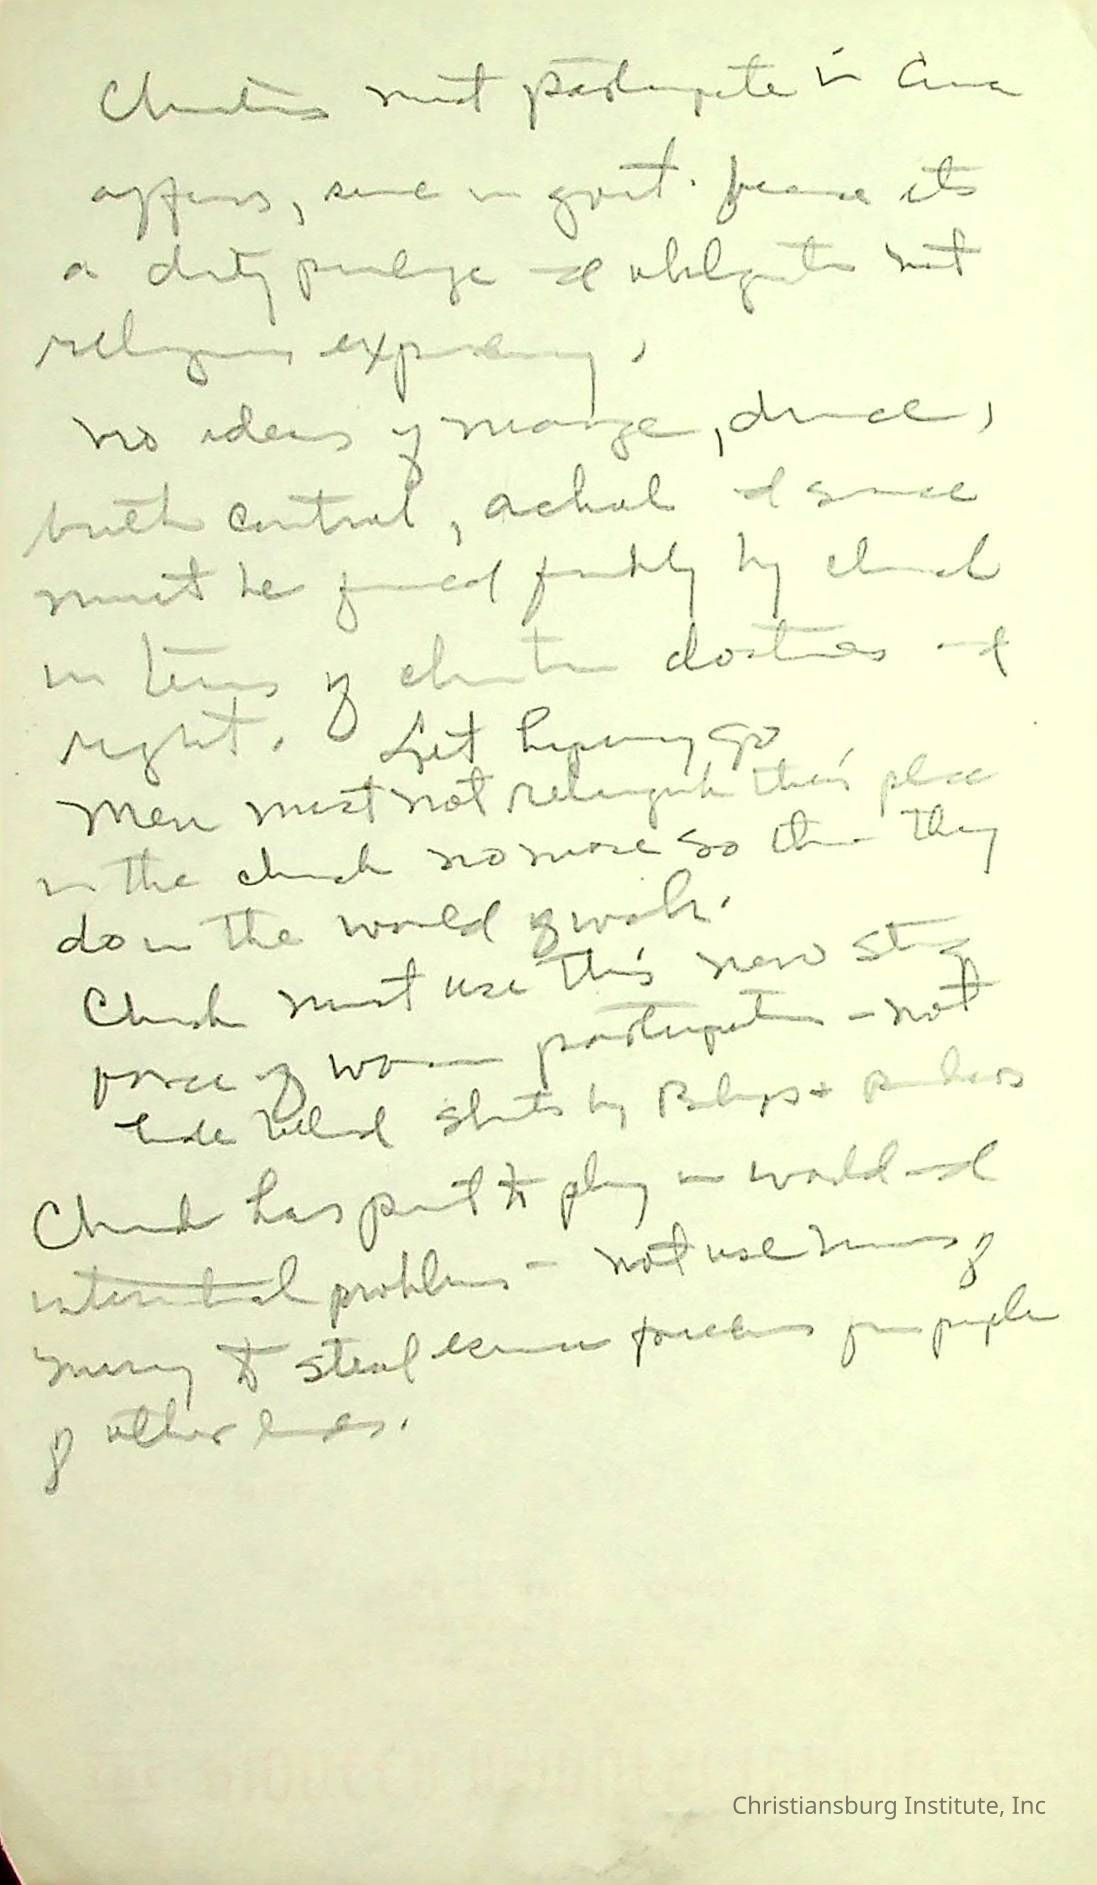 Christians must participate in Civic
affairs, serve in govt. because its
a duty privilege and obligation not
religious expediency.
No ideas of marriage, divorce,
birth control, alcohol and
must be faced frankly by church
in terms of christian doctrines and
right. Let hypocrisy go
Men must not relinquish their place
in the church no more so than they
do in the world of work.
Church must use this new strong
force of women participation - not
hide behind skirts by Bishops +
Church has part to play in world and
international problems - not use
money to steal from people
of other lands.
Christiansburg Institute, Inc